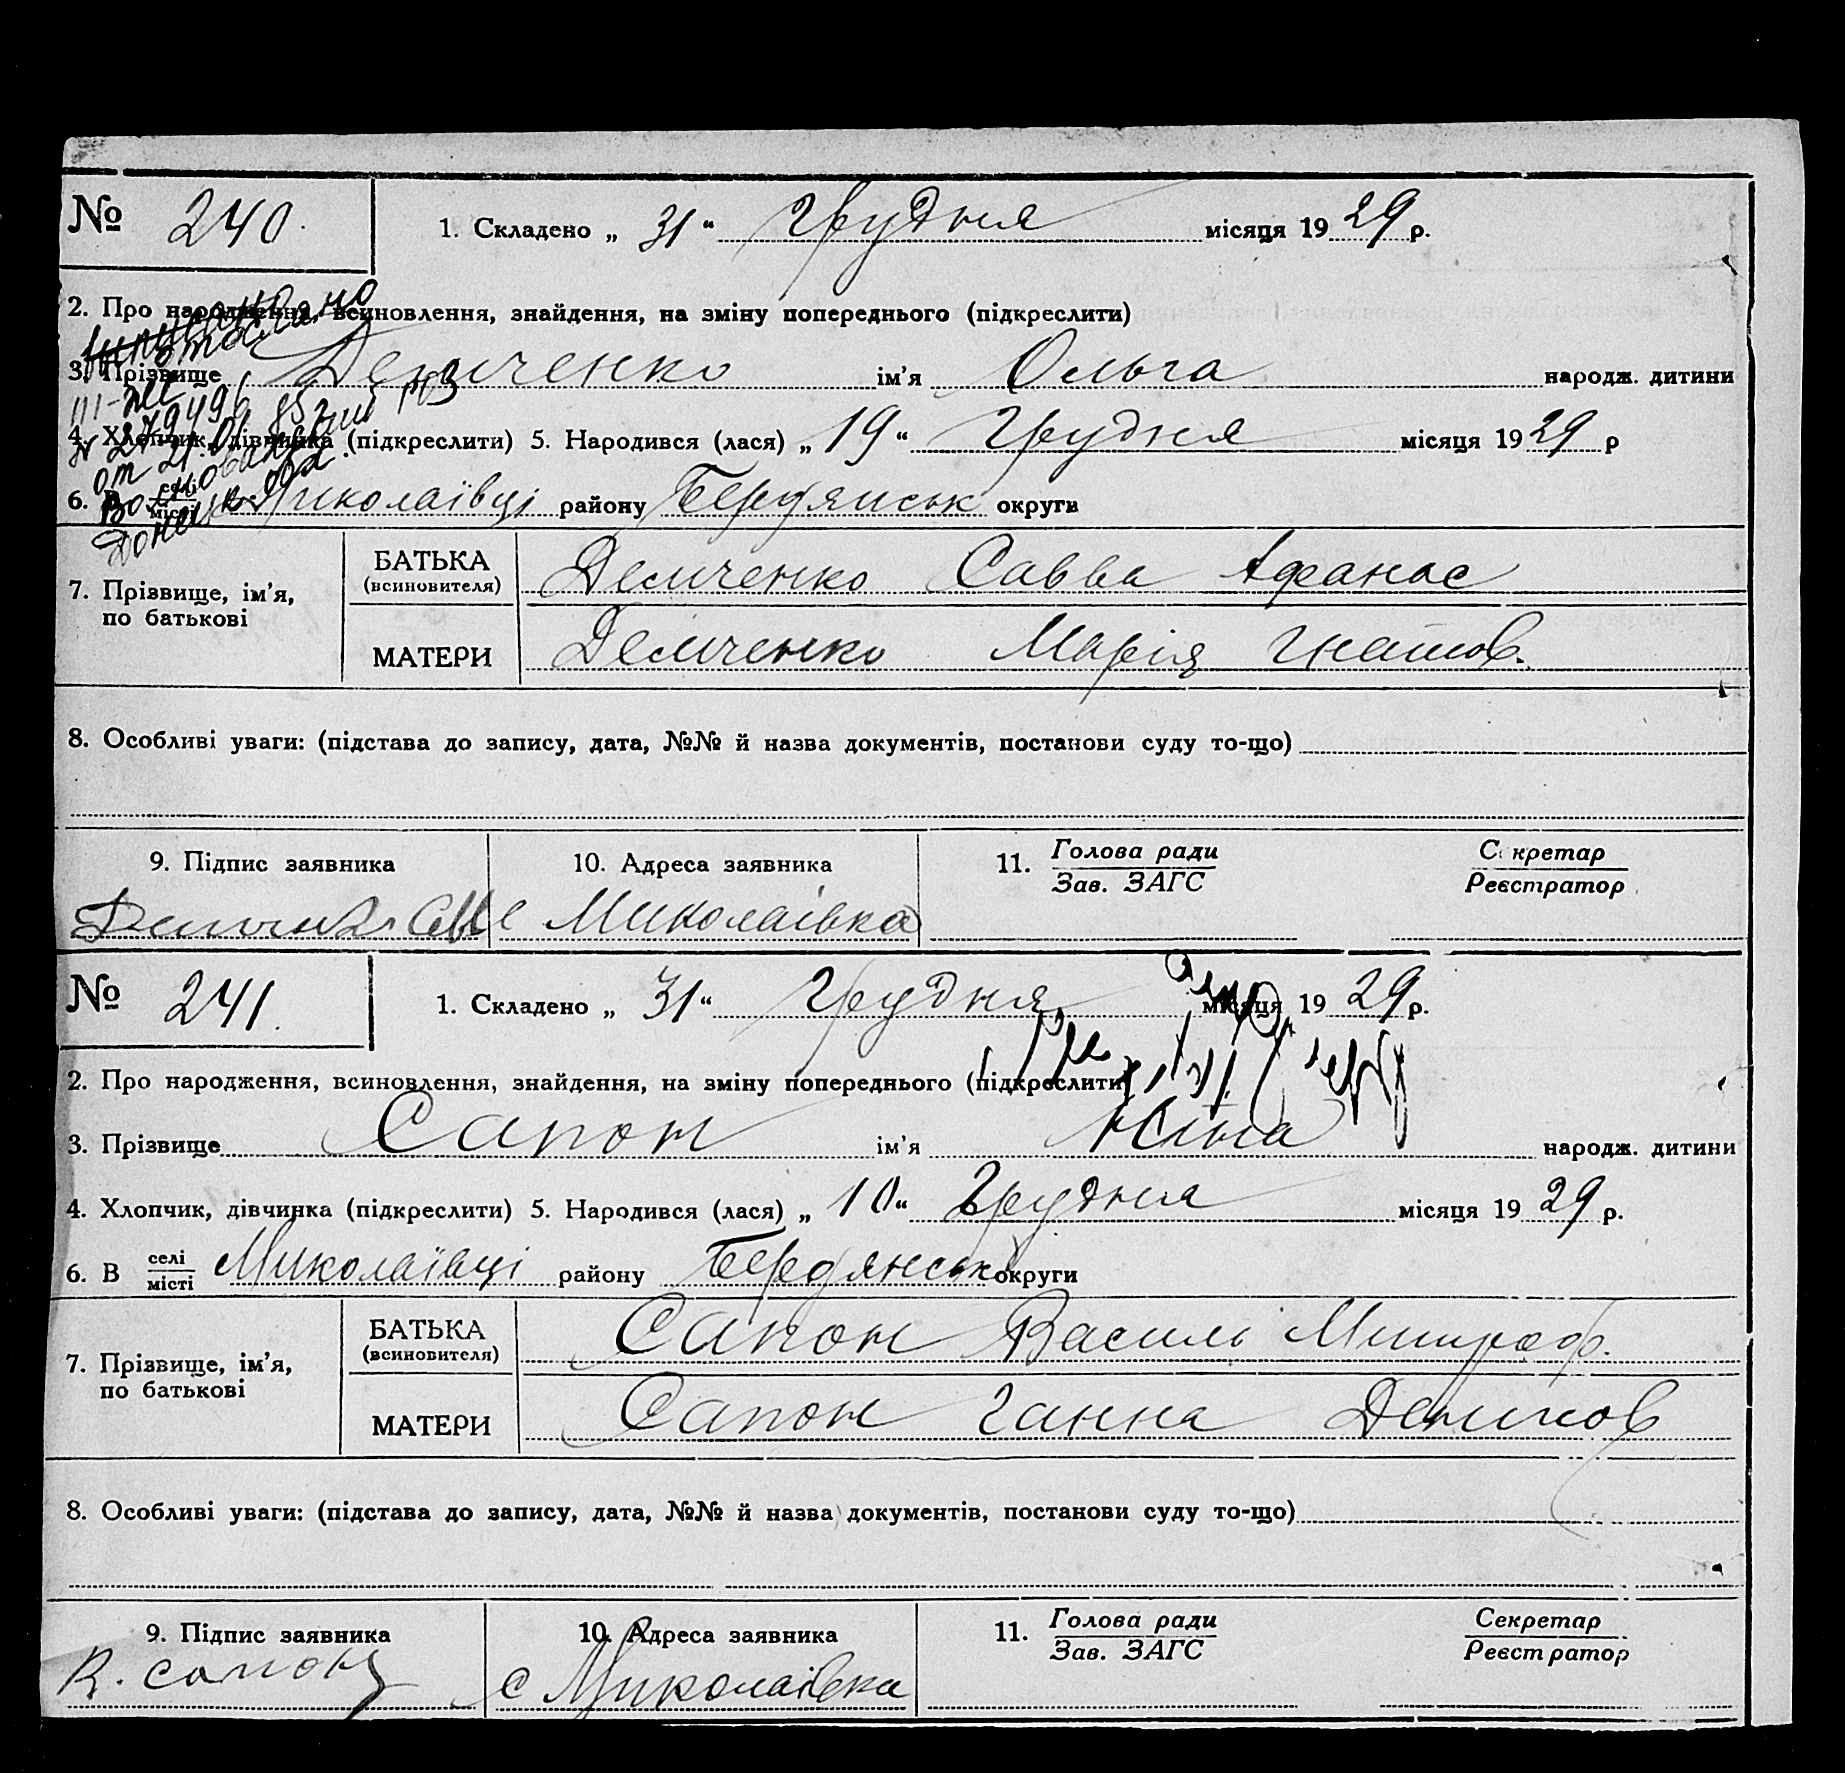 № 240. 1. Складено „ 31 “ Грудня місяця 19 29 р.
2. Про народження, всиновлення, знайдення, на зміну попереднього (підкреслити)
3. Прізвище Демченко ім’я Ольга народж. дитини
4. Хлопчик, дівчинка (підкреслити) 5. Народився (лася) „ 19 “ Грудня місяця 19 29 р
6. В селі місті Миколаївці району Бердянськ округи
III-ЖС
№ 279496
от 21.01.85 г.
Донецк. обл.
7. Прізвище, ім’я, по батькові
БАТЬКА (всиновителя) Демченко Савва Афанас
МАТЕРИ Демченко Марія Гнатов.
8. Особливі уваги: (підстава до запису, дата, №№ й назва документів, постанови суду то-що)
9. Підпис заявника 10. Адреса заявника 11. Голова ради Зав. ЗАГС Секретар Реєстратор
с Миколаівка
№ 241. 1. Складено „ 31 “ Грудня місяця 19 29 р.
2. Про народження, всиновлення, знайдення, на зміну попереднього (підкреслити)
3. Прізвище Сапон ім’я Ніна народж. дитини
4. Хлопчик, дівчинка (підкреслити) 5. Народився (лася) „ 10 “ Грудня місяця 19 29 р.
6. В селі місті Миколаївці району Бердянськ округи
7. Прізвище, ім’я, по батькові
БАТЬКА (всиновителя) Сапон Василь Митроф.
МАТЕРИ Сапон Ганна Денисов
8. Особливі уваги: (підстава до запису, дата, №№ й назва документів, постанови суду то-що)
9. Підпис заявника 10. Адреса заявника 11. Голова ради Зав. ЗАГС Секретар Реєстратор
В. Сапон с Миколаівка